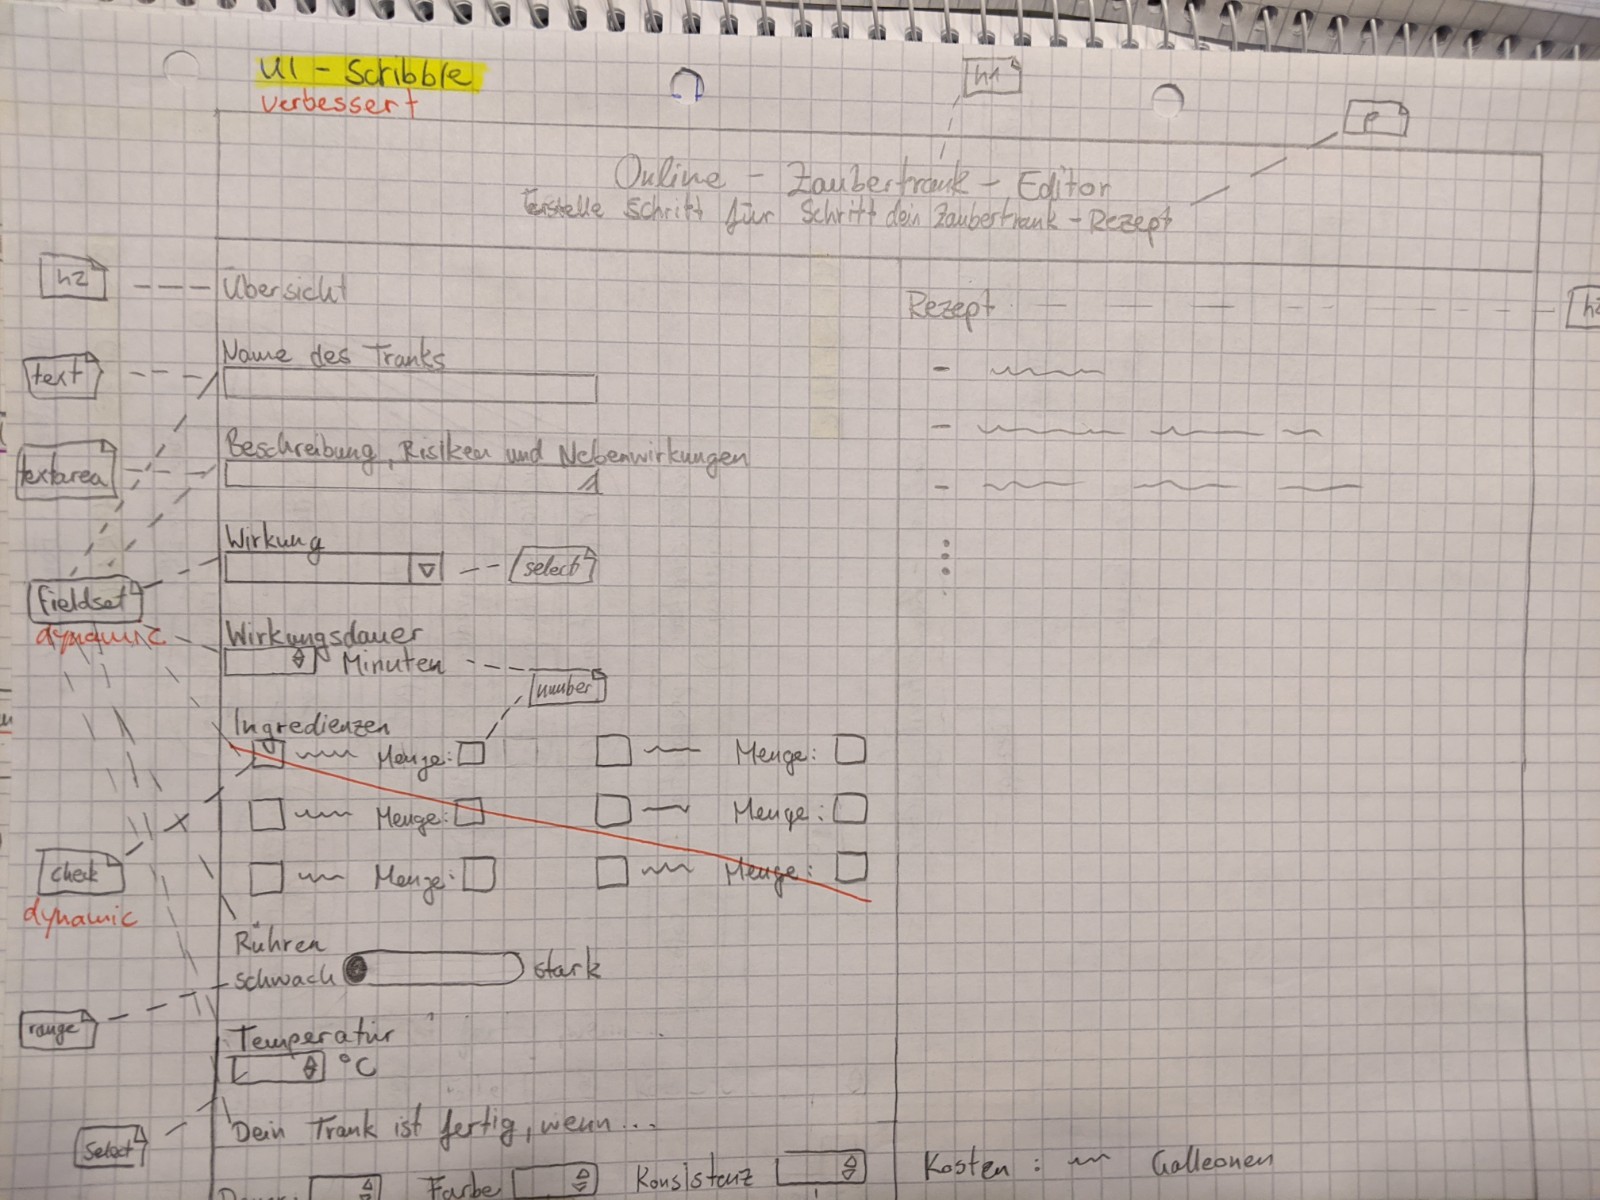 UI - Scribble
verbessert
h1
p
Online - Zaubertrank - Editor
Erstelle Schritt für Schritt dein Zaubertrank - Rezept
h2
Übersicht
Rezept
h2
Name des Tranks
text
Beschreibung, Risiken und Nebenwirkungen
textarea
Wirkung
select
fieldset
dynamic
Wirkungsdauer
Minuten
number
Ingredienzen
Menge: Menge:
Menge: Menge:
Menge: Menge:
check
dynamic
Rühren
schwach stark
range
Temperatur
°C
Dein Trank ist fertig, wenn...
Select
Dauer Farbe Konsistenz
Kosten : Galleonen